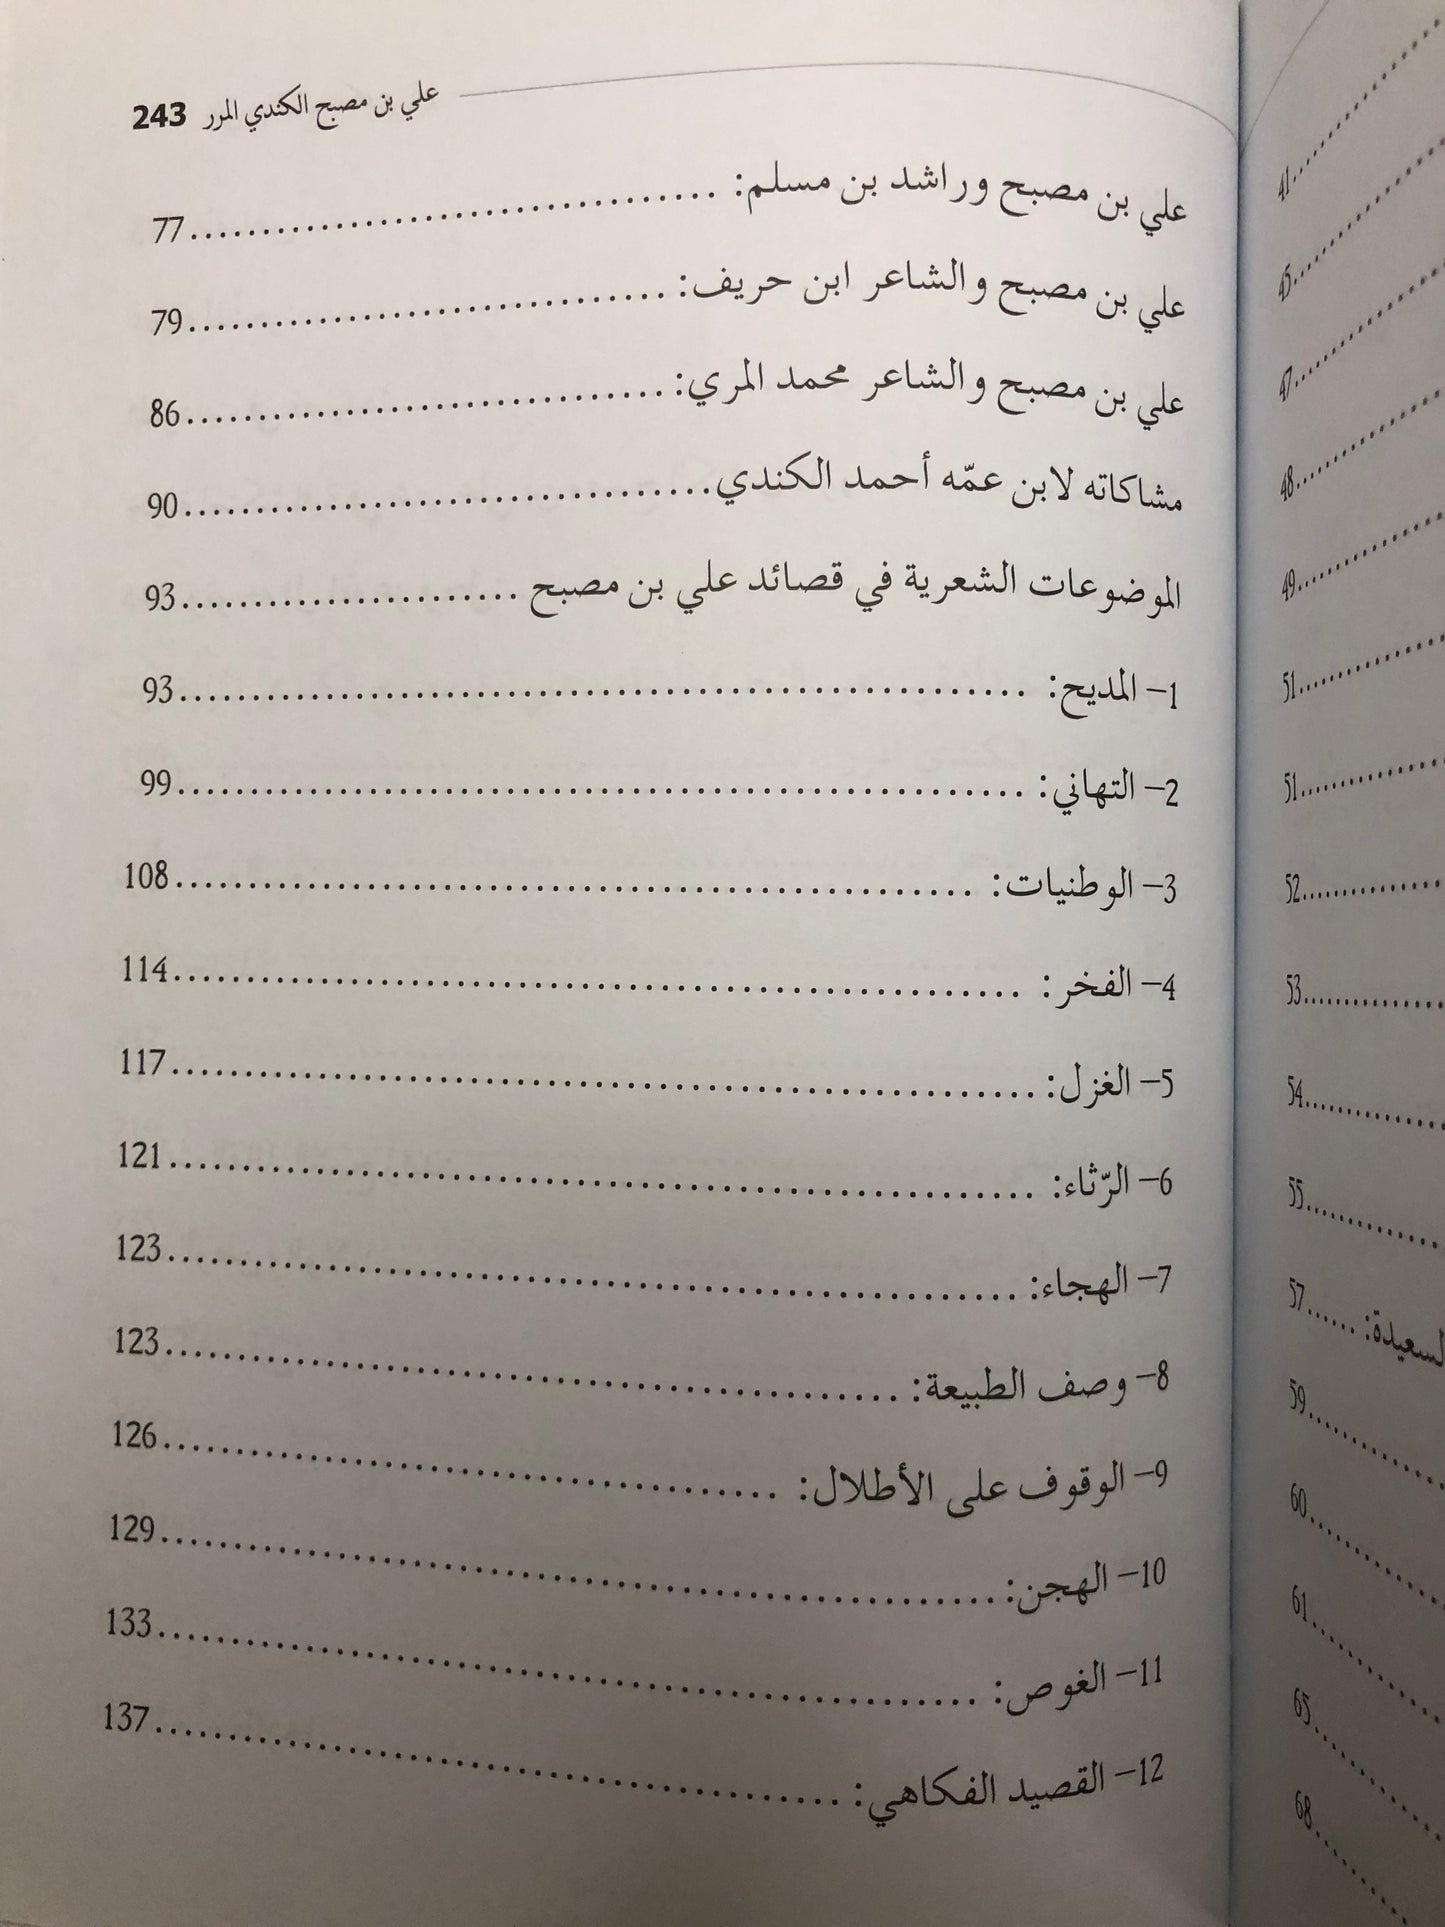 علي بن مصبح الكندي المرر 243
علي بن مصبح وراشد بن مسلم: ........ 77
علي بن مصبح والشاعر ابن حريف: ........ 79
علي بن مصبح والشاعر محمد المري: ........ 86
مشاكاته لابن عمّه أحمد الكندي ........ 90
الموضوعات الشعرية في قصائد علي بن مصبح ........ 93
1– المديح: ........ 93
2– التهاني: ........ 99
3– الوطنيات: ........ 108
4– الفخر: ........ 114
5– الغزل: ........ 117
6– الرّثاء: ........ 121
7– الهجاء: ........ 123
8– وصف الطبيعة: ........ 123
9– الوقوف على الأطلال: ........ 126
10– الهجن: ........ 129
11– الغوص: ........ 133
12– القصيد الفكاهي: ........ 137
41
45
47
48
49
51
51
52
53
54
55
السعيدة: ...... 57
59
60
61
65
68